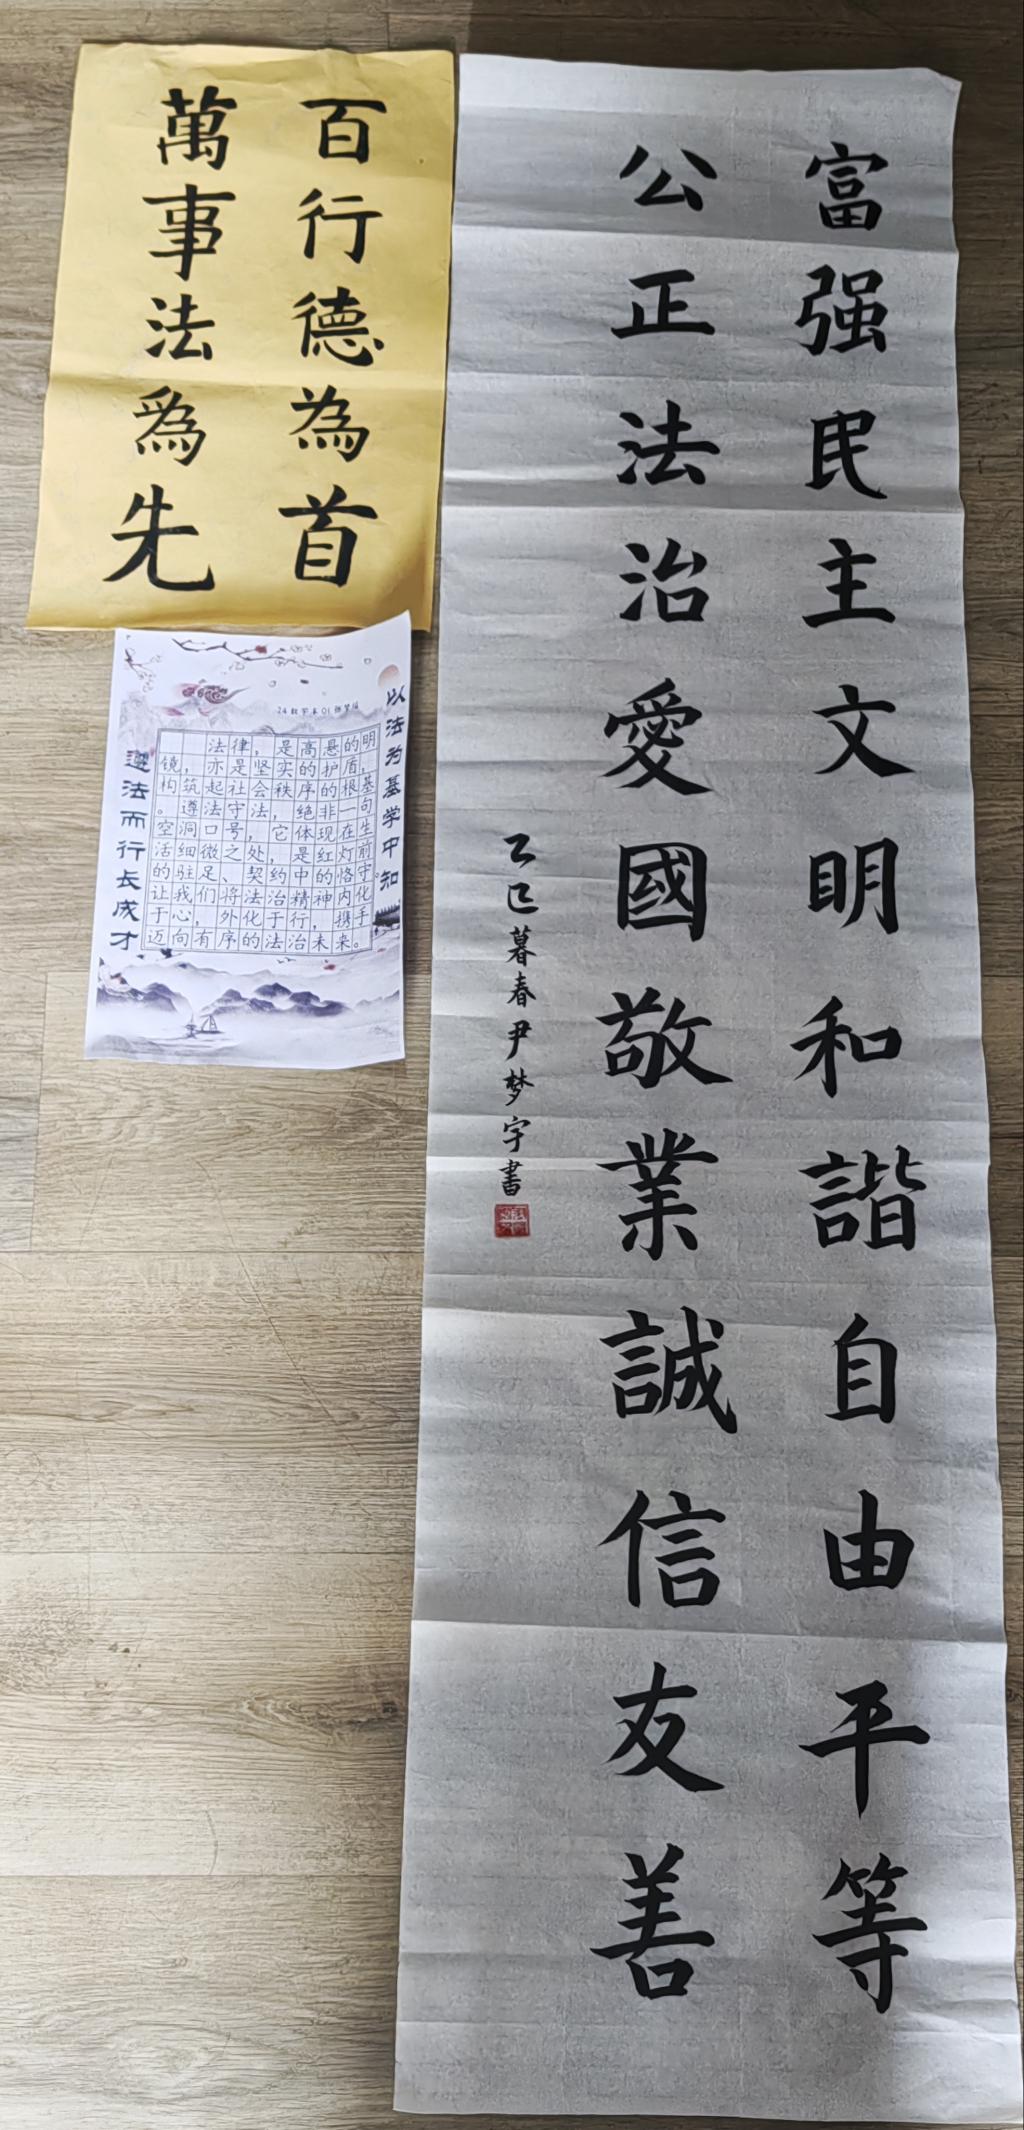 富强民主文明和諧自由平等
公正法治愛國敬業誠信友善
乙巳暮春尹梦宇書
百行德為首
萬事法爲先
以法为基学中知
法律，是高悬的明
镜，亦是坚实的护盾，
构筑起社会秩序的根基
。遵法守法，绝非一句
空洞口号，它体现在生
活细微之处，是红灯前
的驻足、契约中的恪守。
让我们将法治精神内化
于心，外化于行，携手
迈向有序的法治未来。
遵法而行长成才